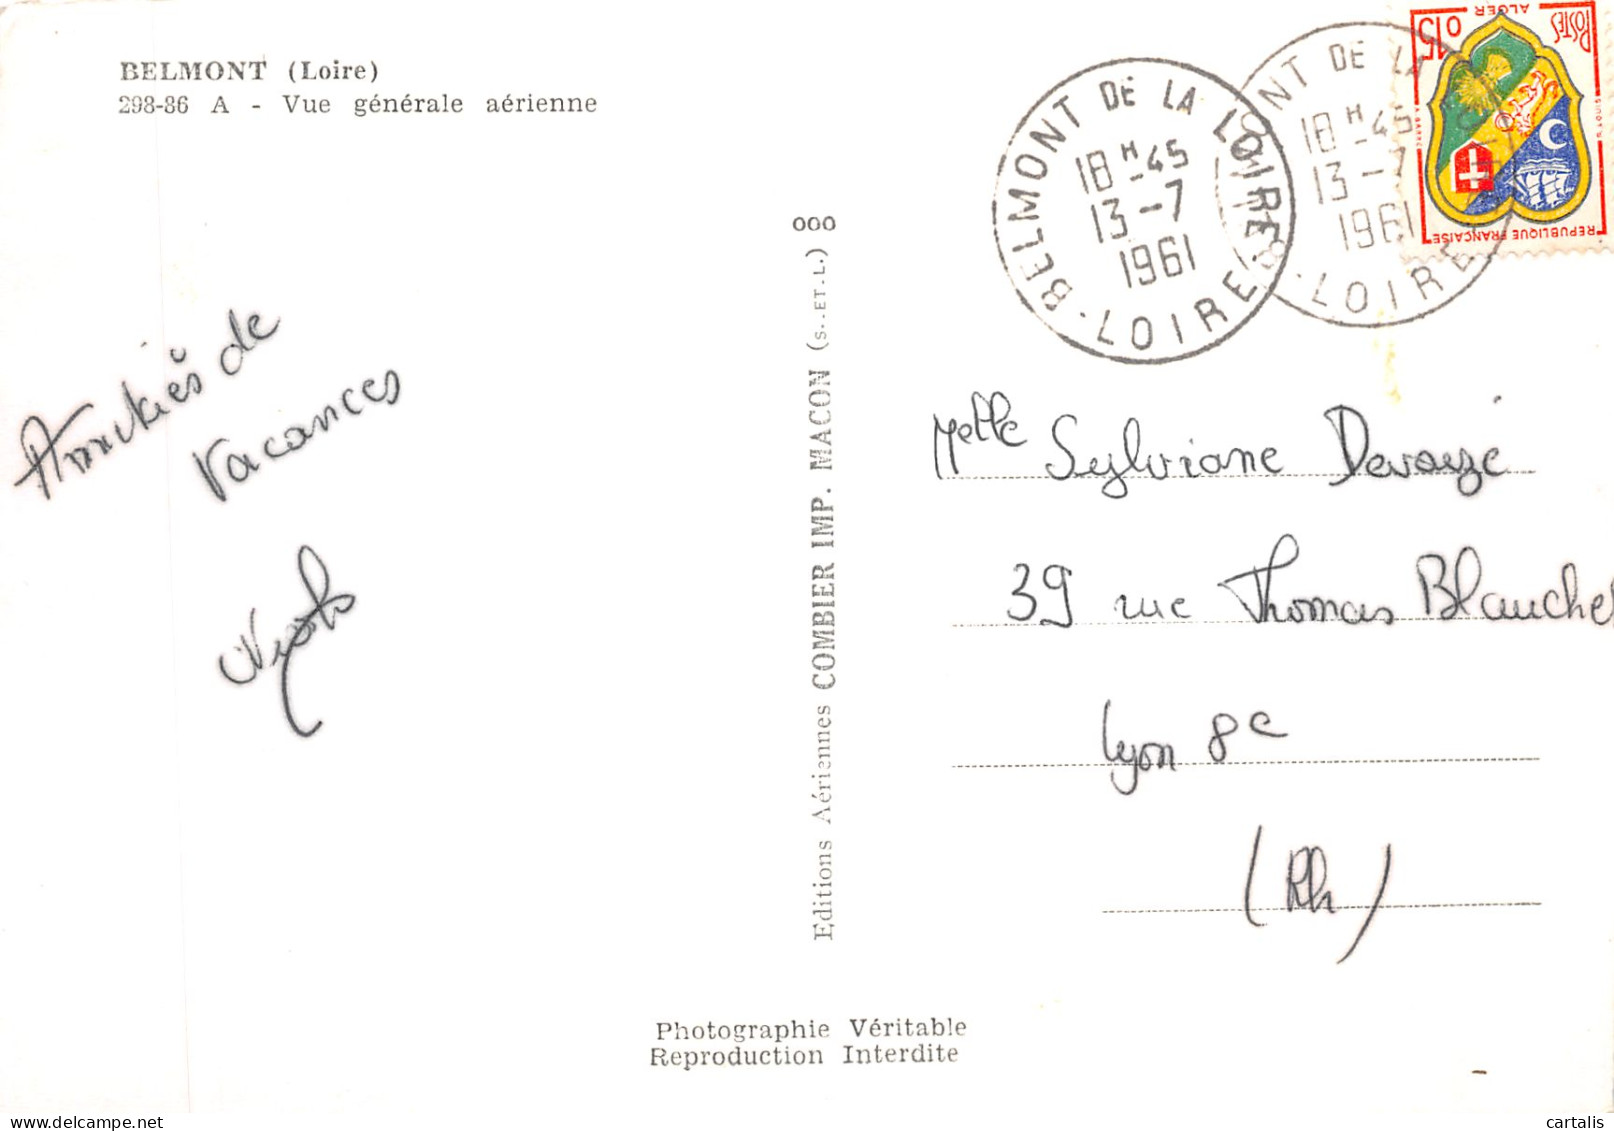 BELMONT (Loire)
298-86 A - Vue générale aérienne
Amitiés de
Vacances
Editions Aériennes COMBIER IMP. MACON (S.-ET-L.)
000
BELMONT DE LA LOIRE
18 H -45
13 -7
1961
LOIRE
NT DE LA
18 H -45
13 -7
1961
LOIRE
POSTES
ALGER
0,15
REPUBLIQUE FRANÇAISE
Melle Sylviane Devauzé
39 rue Thomas Blanchet
Lyon 8e
(Rh)
Photographie Véritable
Reproduction Interdite
cartalis